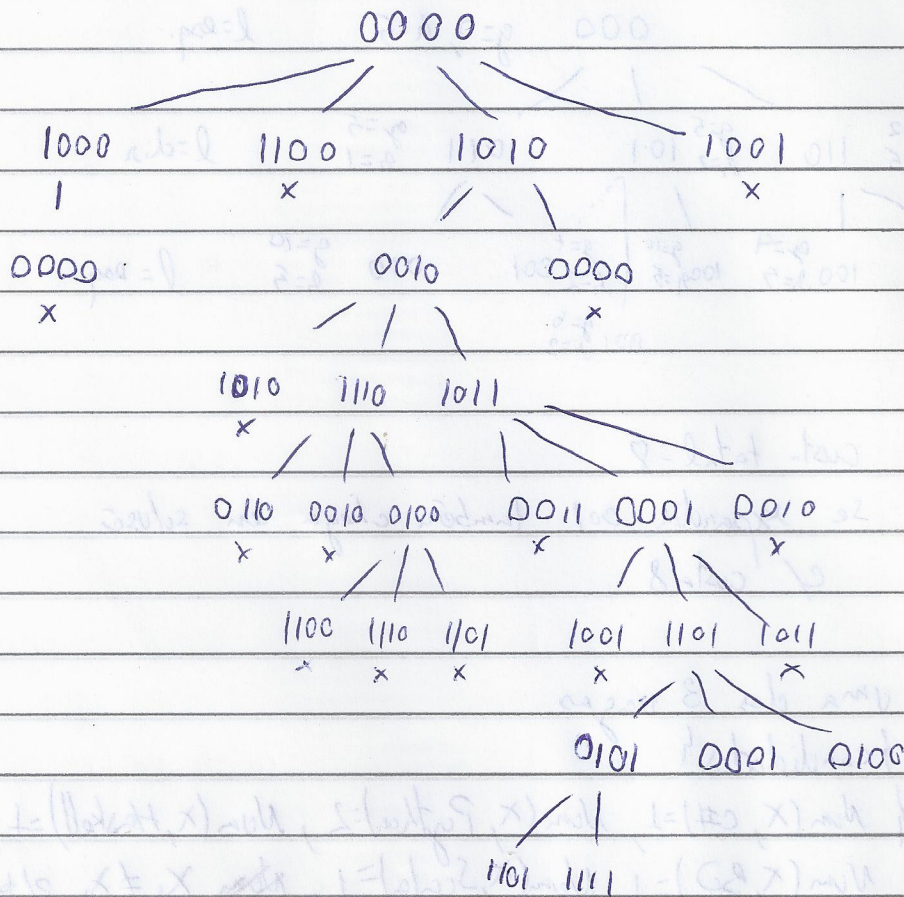 0000
1000 1100 1010 1001
x x
0000 0010 0000
x x
1010 1110 1011
x
0110 0010 0100 0011 0001 0010
x x x x
1100 1110 1101 1001 1101 1011
x x x x x
0101 0001 0100
1101 1111